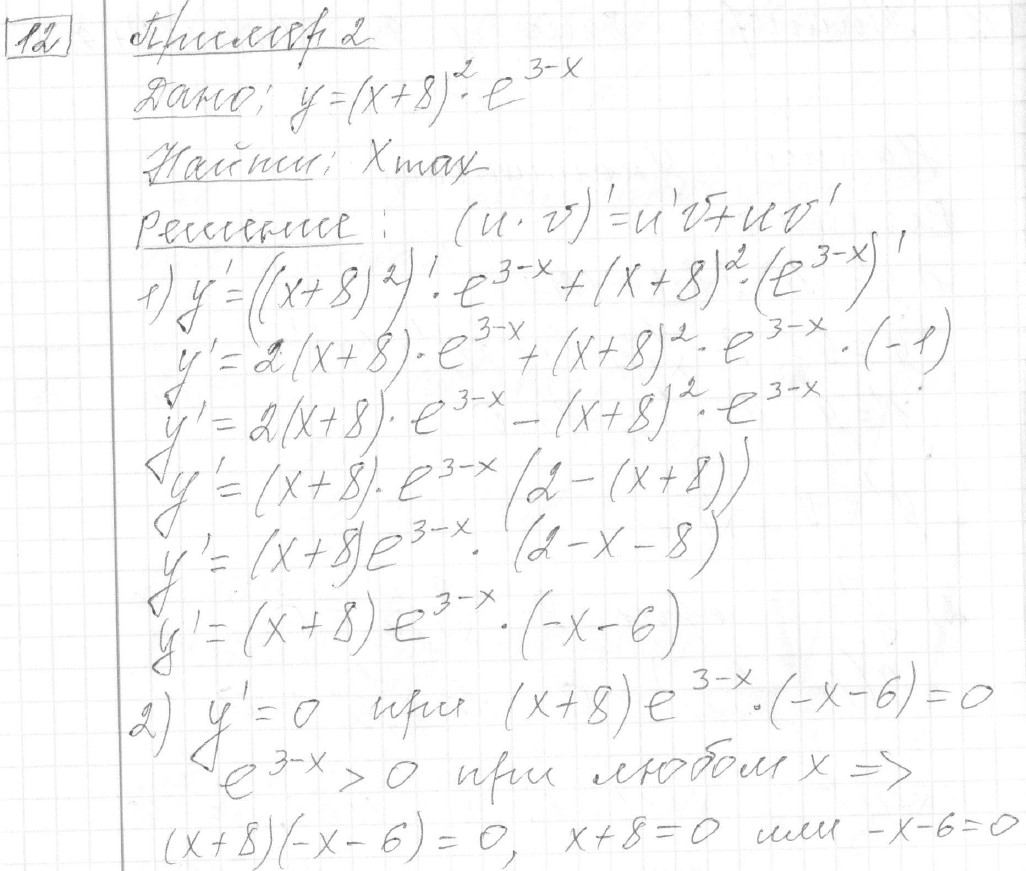 12 Пример 2
Дано: y=(x+8)²·e^(3-x)
Найти: Xmax
Решение: (u·v)'=u'v+uv'
1) y'=((x+8)²)'·e^(3-x)+(x+8)²·(e^(3-x))'
y'=2(x+8)·e^(3-x)+(x+8)²·e^(3-x)·(-1)
y'=2(x+8)·e^(3-x)-(x+8)²·e^(3-x)
y'=(x+8)·e^(3-x)(2-(x+8))
y'=(x+8)e^(3-x)·(2-x-8)
y'=(x+8)e^(3-x)·(-x-6)
2) y'=0 при (x+8)e^(3-x)·(-x-6)=0
e^(3-x)>0 при любом x =>
(x+8)(-x-6)=0, x+8=0 или -x-6=0